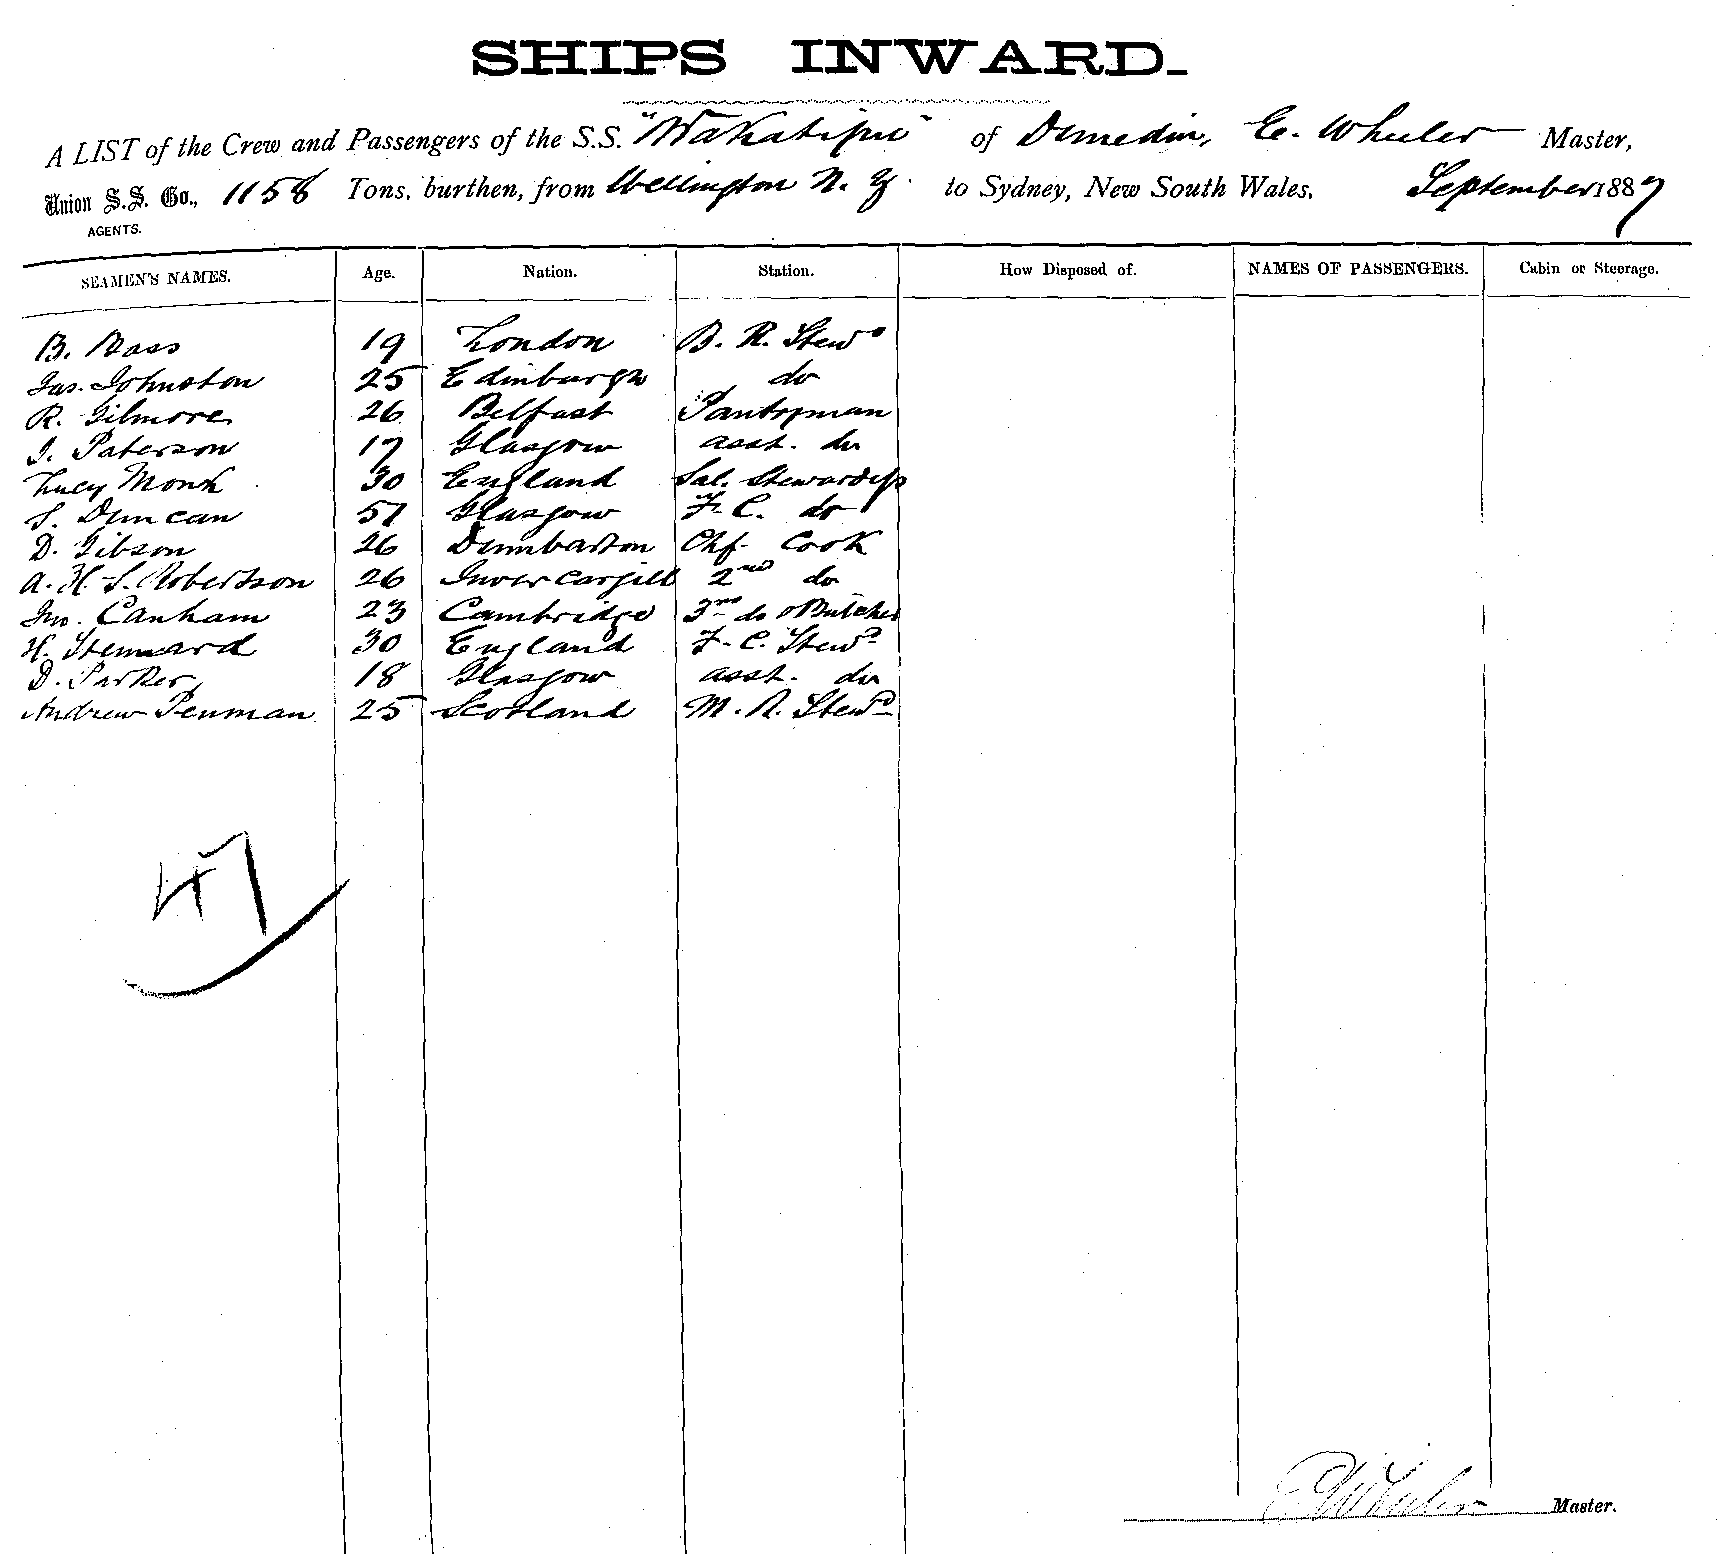 SHIPS INWARD.
A LIST of the Crew and Passengers of the S.S. "Wakatipu" of Dunedin, E. Wheeler Master,
Union S.S. Co., 1158 Tons, burthen, from Wellington N. Z. to Sydney, New South Wales, September 1887
AGENTS.
SEAMEN'S NAMES. Age. Nation. Station. How Disposed of. NAMES OF PASSENGERS. Cabin or Steerage.
B. Bass 19 London B. R. Stewd
Jas. Johnston 25 Edinburgh do
R. Gilmore 26 Belfast Pantryman
J. Paterson 17 Glasgow asst. do
Lucy Monk 30 England Sal. Stewardess
S. Duncan 51 Glasgow F. C. do
D. Gibson 26 Dumbarton Chf. Cook
A. H. S. Robertson 26 Invercargill 2nd do
Jno. Canham 23 Cambridge 3rd do & Butcher
H. Stennard 30 England F. C. Stewd
D. Parker 18 Glasgow asst. do
Andrew Penman 25 Scotland M. R. Stewd
47
E Wheeler Master.